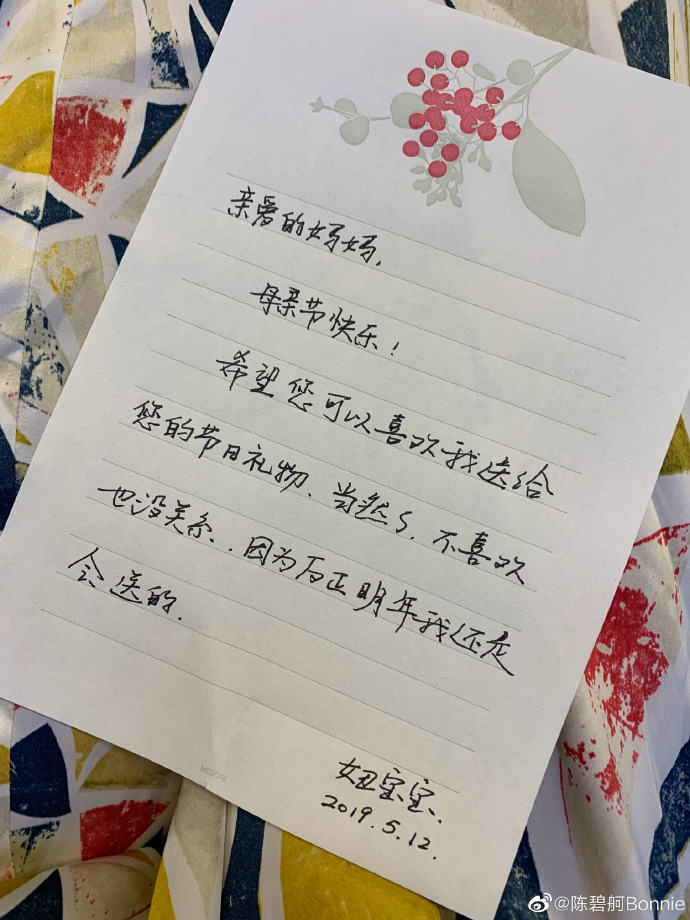 亲爱的妈妈，
母亲节快乐！
希望您可以喜欢我送给
您的节日礼物、当然了，不喜欢
也没关系，因为反正明年我还是
会送的.
妞宝宝.
2019.5.12.
MIDORI
@陈碧舸Bonnie